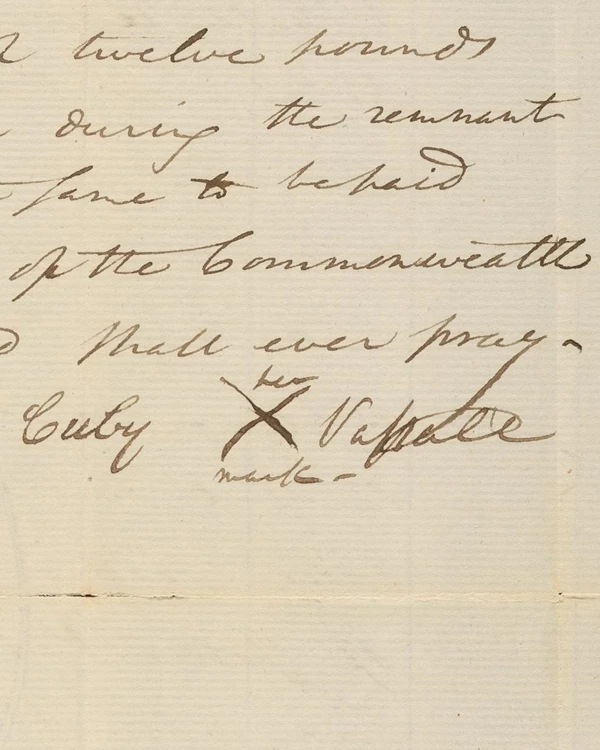 twelve pounds
during the remnant
same to be paid
of the Commonwealth
shall ever pray-
her
Cuby X Vassall
mark-